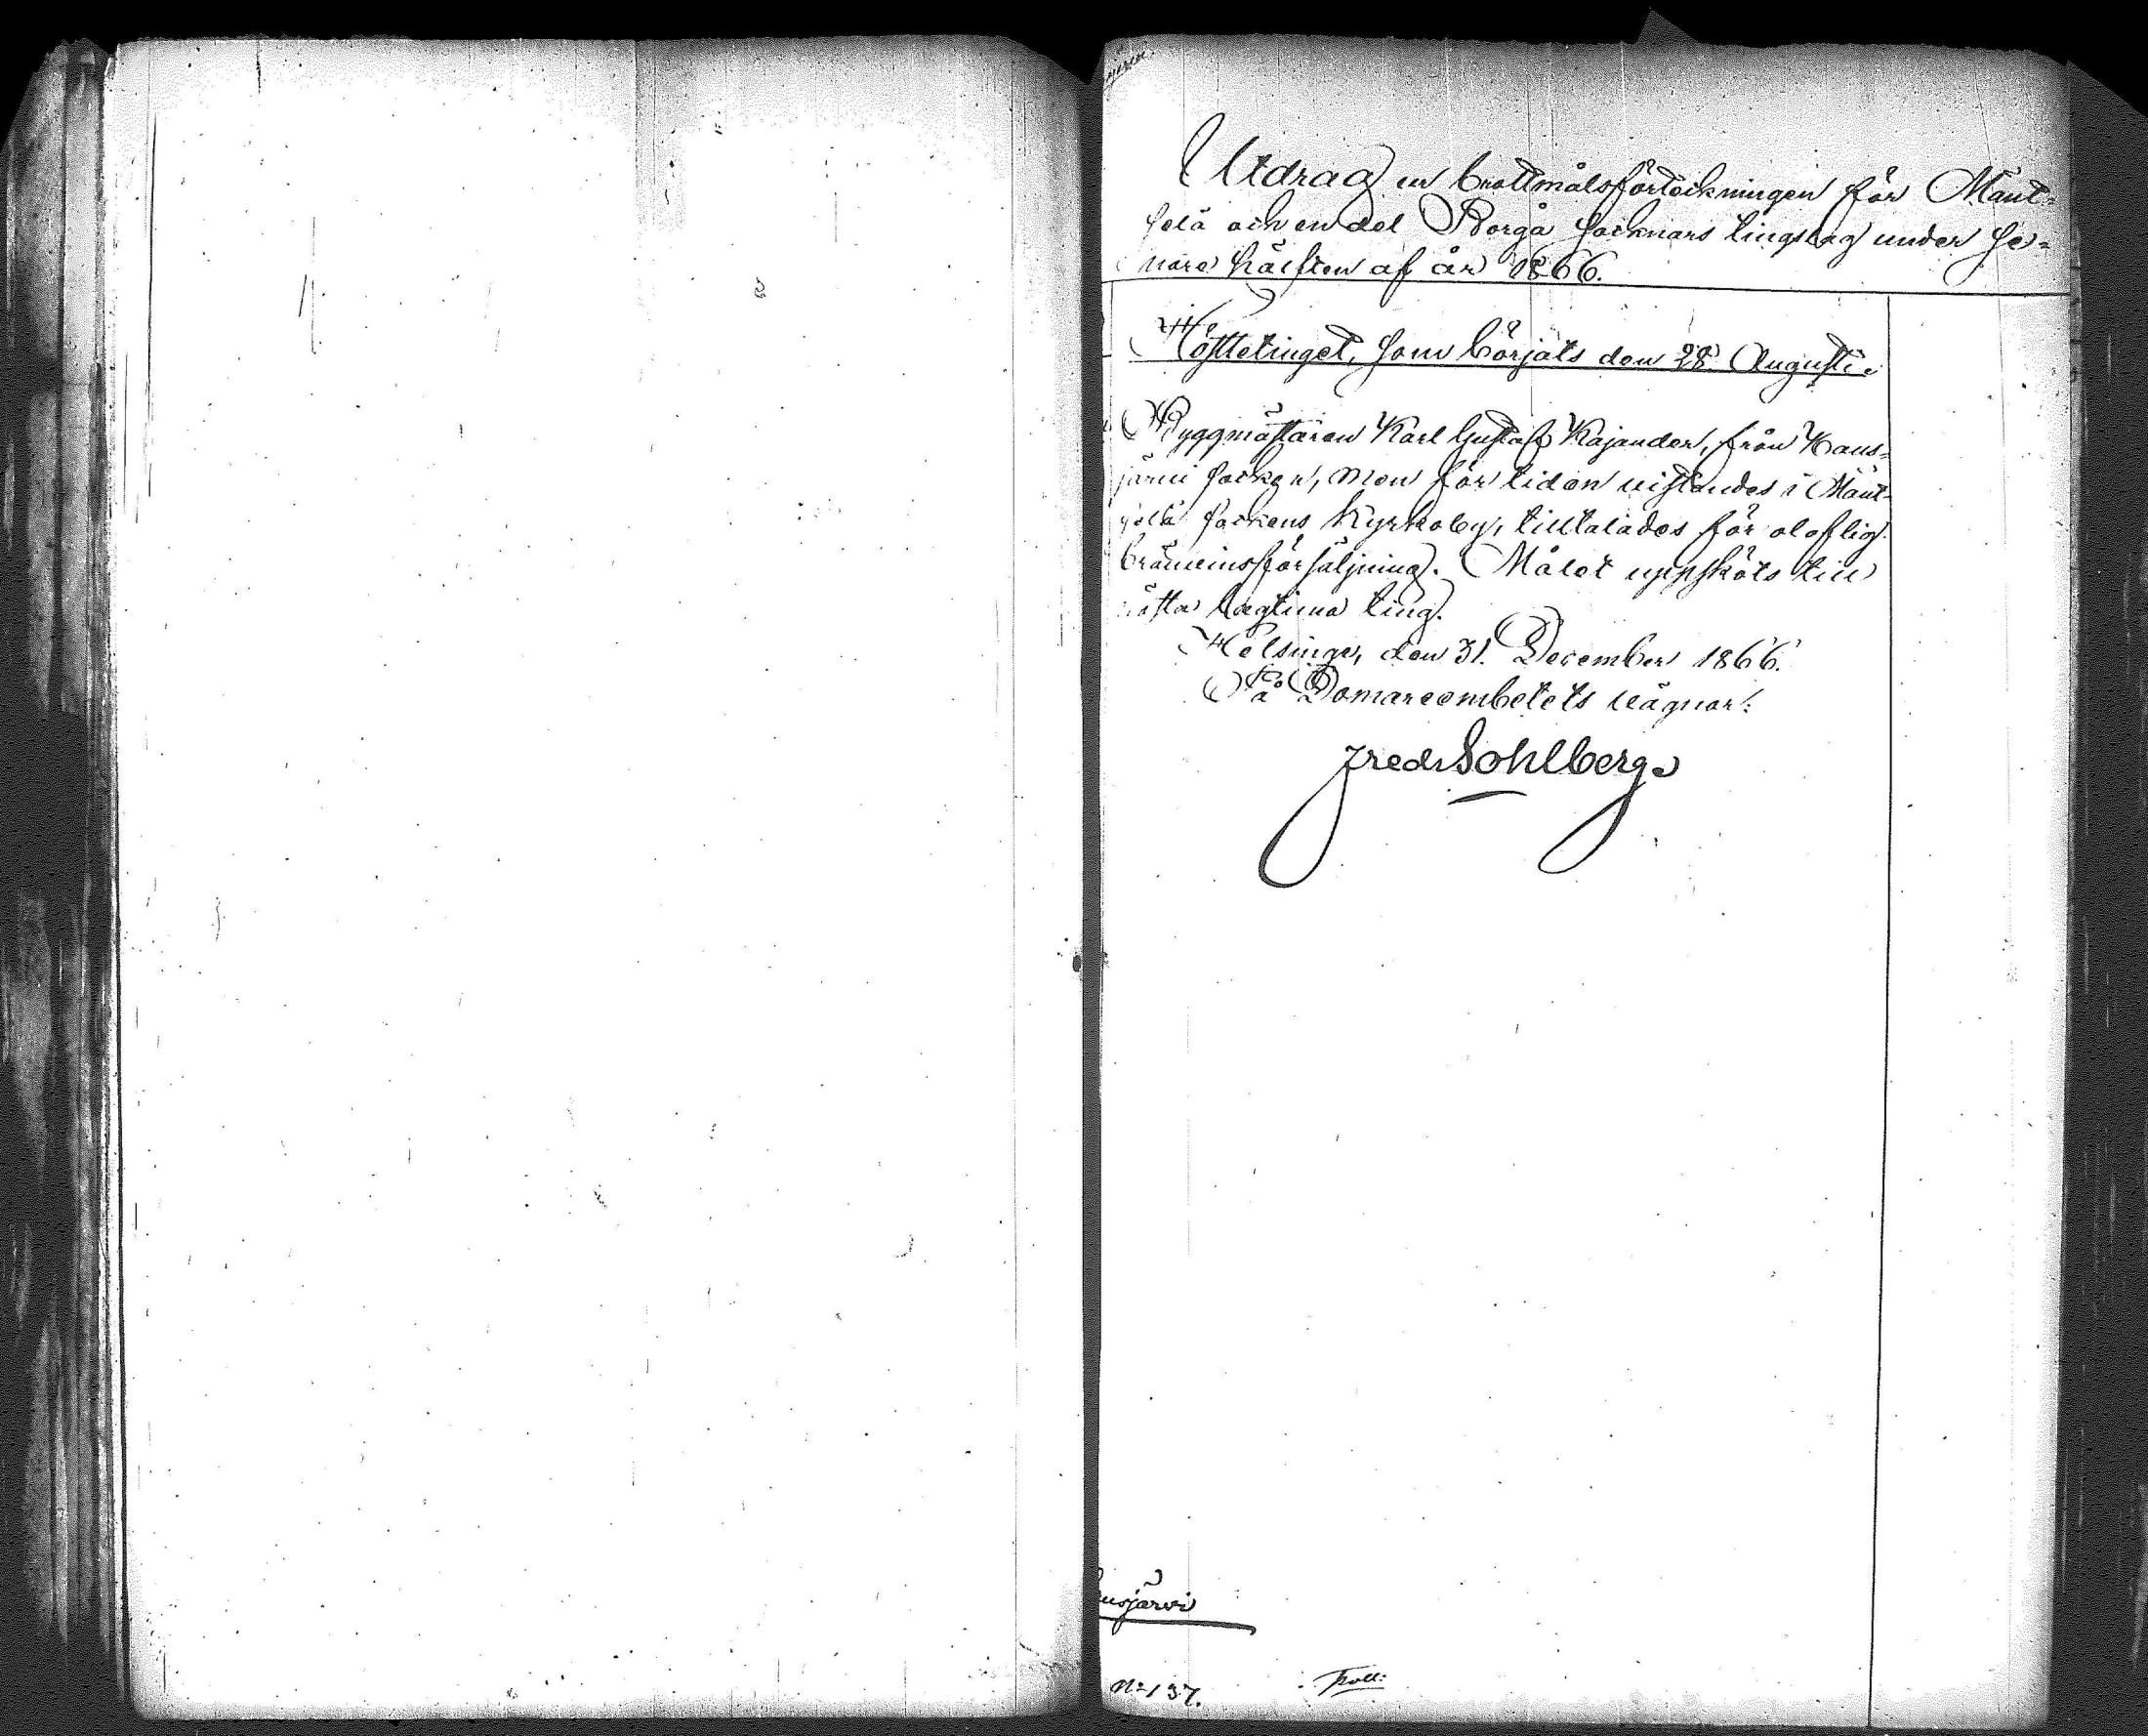 Utdrag ur brottmålsförteckningen för Mänt-
selä och en del Borgå socknars tingslag under se-
nare hälften af år 1866.
Höstetinget, som börjats den 28 Augusti.
Byggmästaren Karl Gustaf Kajander, från Haus-
järvi socken, men för tiden vistandes i Mänt-
selä sockens Kyrkoby, tilltalades för oloflig
bränvinsförsäljning. Målet uppsköts till
nästa lagtima ting.
Helsinge, den 31. December 1866.
På Domareembetets vägnar:
Fredr Sohlberg
usjärvi
No 137.